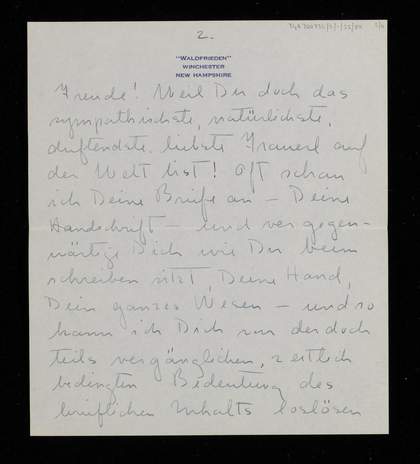 2.
"WALDFRIEDEN"
WINCHESTER
NEW HAMPSHIRE
Freude! Weil Du doch das
sympathischste, natürlichste,
duftendste, liebste Frauerl auf
der Welt bist! Oft schau
ich Deine Briefe an – Deine
Handschrift – und vergegen-
wärtige Dich wie Du beim
schreiben sitzt, Deine Hand,
Dein ganzes Wesen – und so
kann ich Dich von der doch
teils vergänglichen, zeitlich
bedingten Bedeutung des
brieflichen Inhalts loslösen